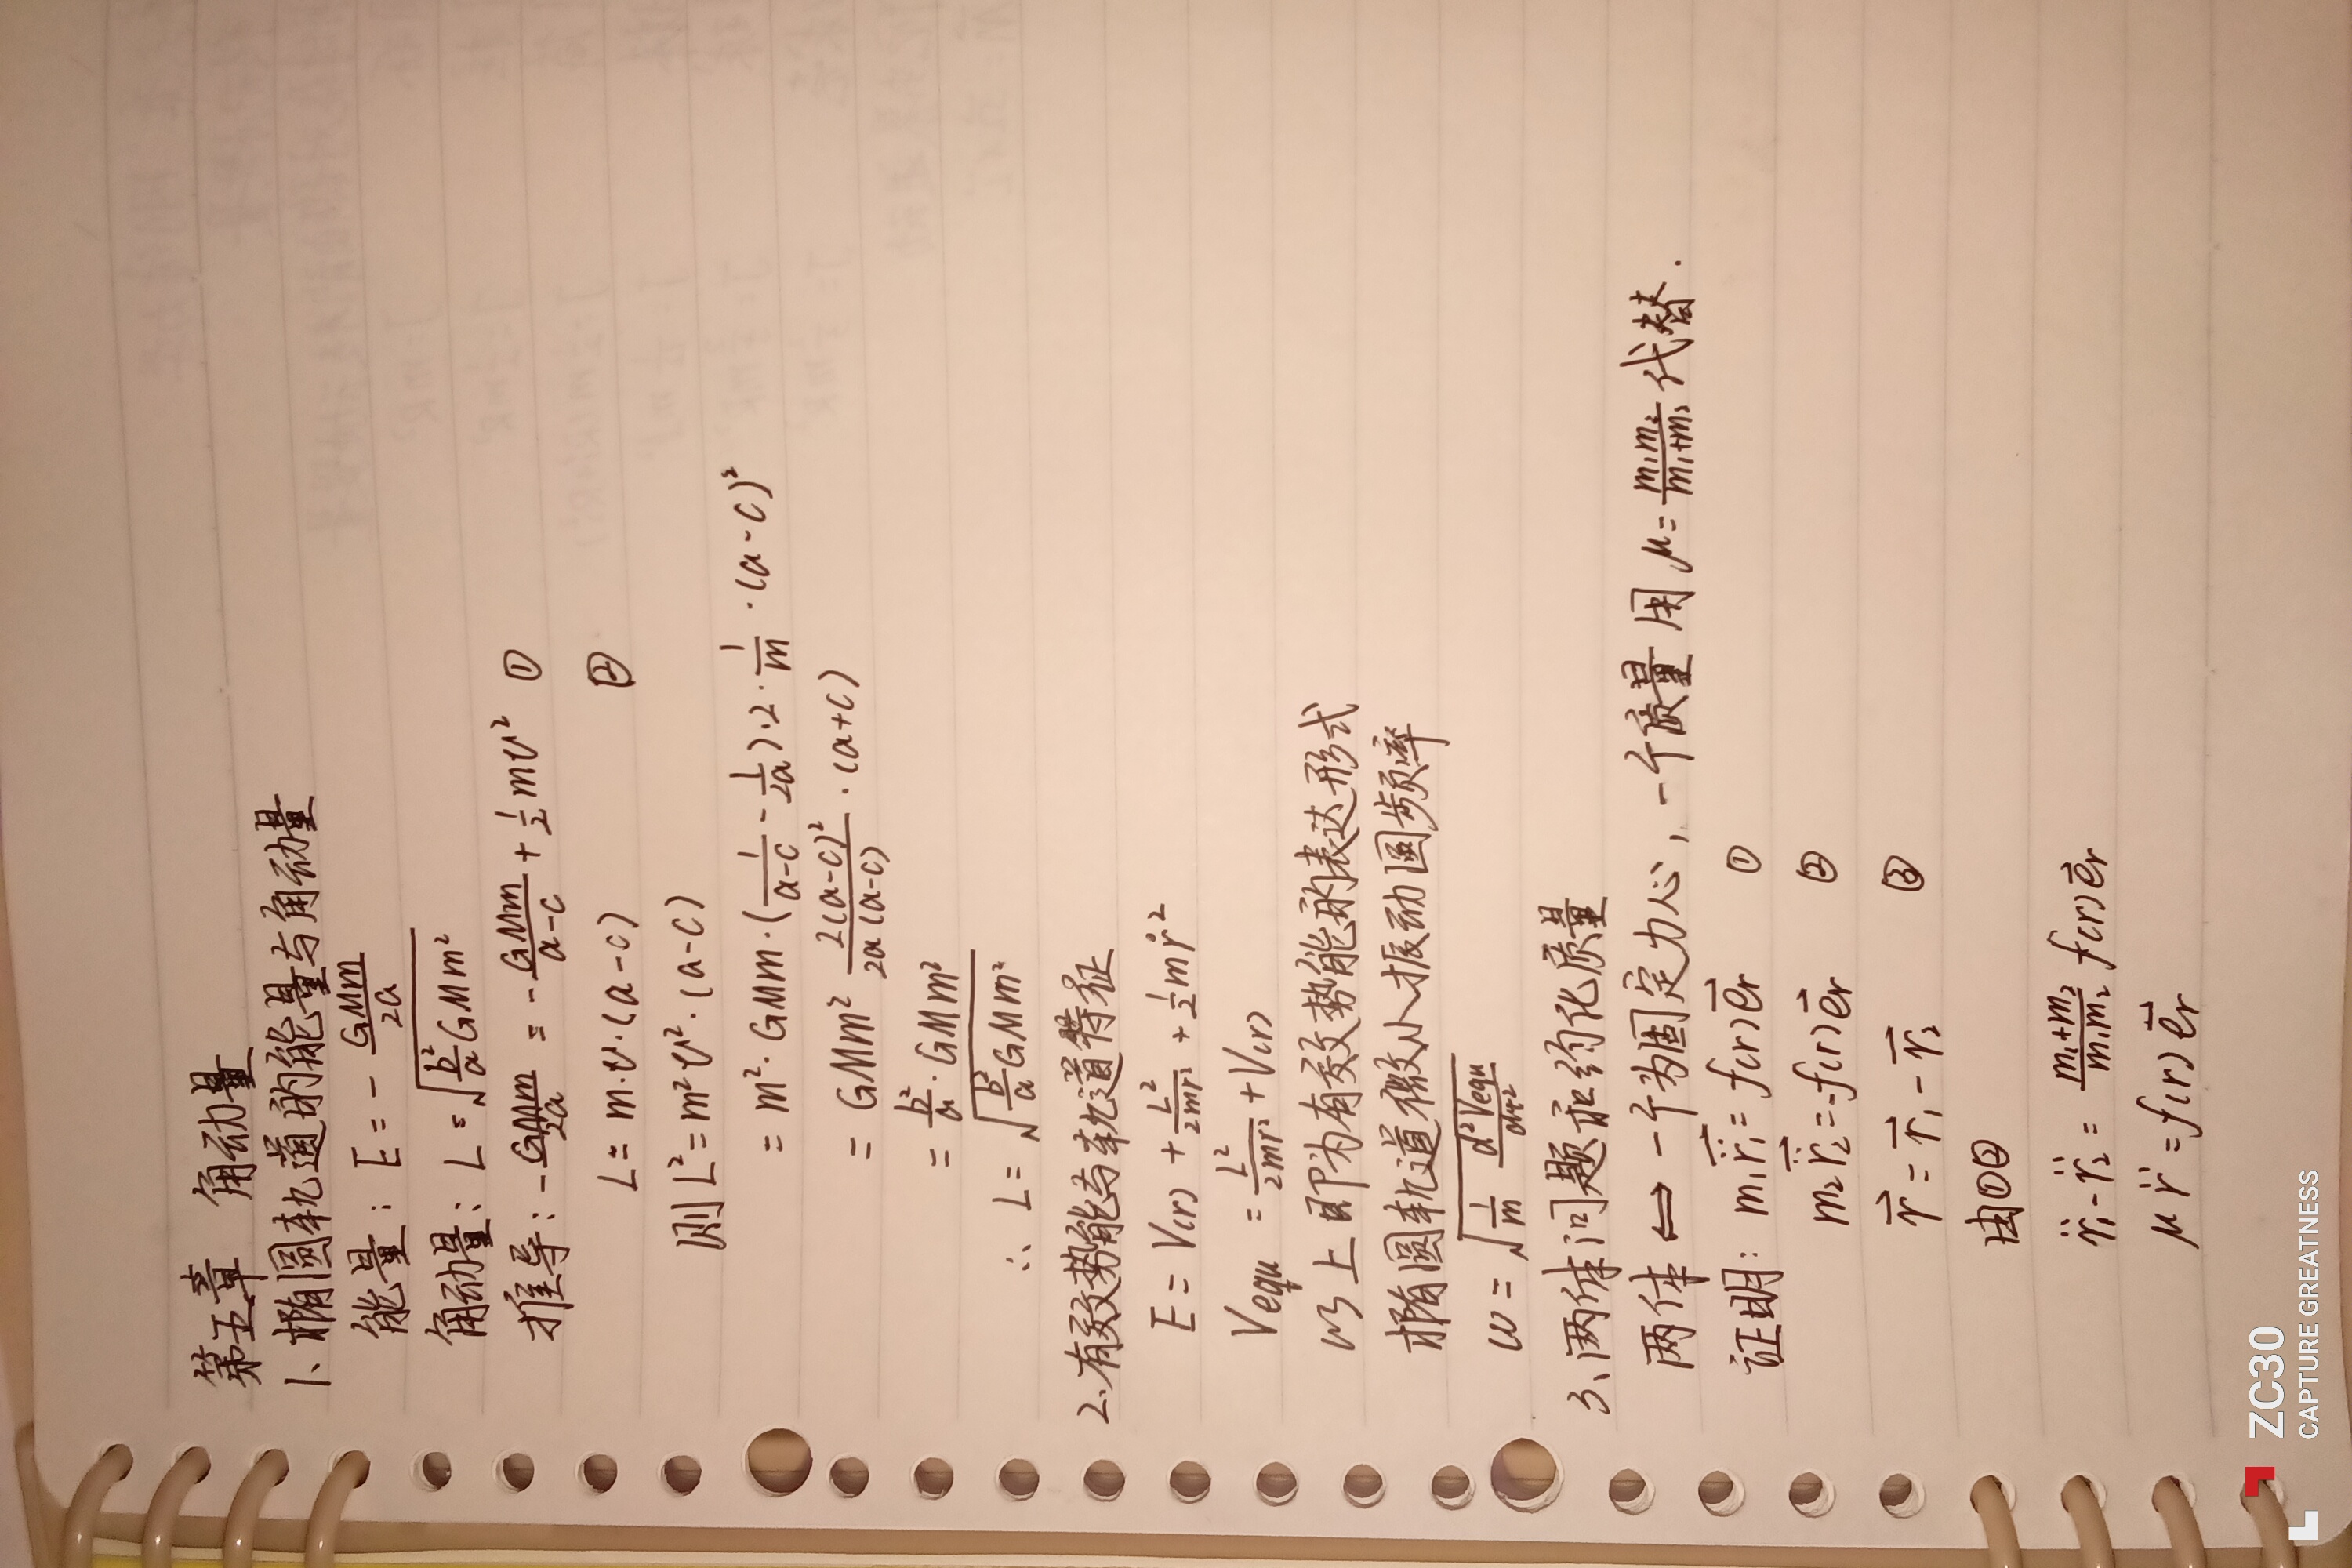 第五章 角动量
1、椭圆轨道的能量与角动量
能量：E = - GMm/2a
角动量：L = √(b²/a GMm²)
推导：- GMm/2a = - GMm/(a-c) + ½mv² ①
L = m·v·(a-c) ②
则 L² = m²v²·(a-c)
= m²·GMm·(1/(a-c) - 1/2a)·2·1/m·(a-c)²
= GMm² 2(a-c)²/2a(a-c)·(a+c)
= b²/a·GMm²
∴ L = √(b²/a GMm²)
2、有效势能与轨道特征
E = V(r) + L²/2mr² + ½mṙ²
Vequ = L²/2mr² + V(r)
以上即为有效势能的表达形式
椭圆轨道微小振动圆频率
ω = √(1/m d²Vequ/dr²)
3、两体问题和约化质量
两体 ⇔ 一个为固定力心，一个质量用 μ = m₁m₂/(m₁+m₂) 代替.
证明：m₁r̈₁ = f(r)e⃗r ①
m₂r̈₂ = -f(r)e⃗r ②
r⃗ = r⃗₁ - r⃗₂ ③
由①②
r̈₁ - r̈₂ = (m₁+m₂)/m₁m₂ f(r)e⃗r
μr̈ = f(r)e⃗r
ZC30
CAPTURE GREATNESS